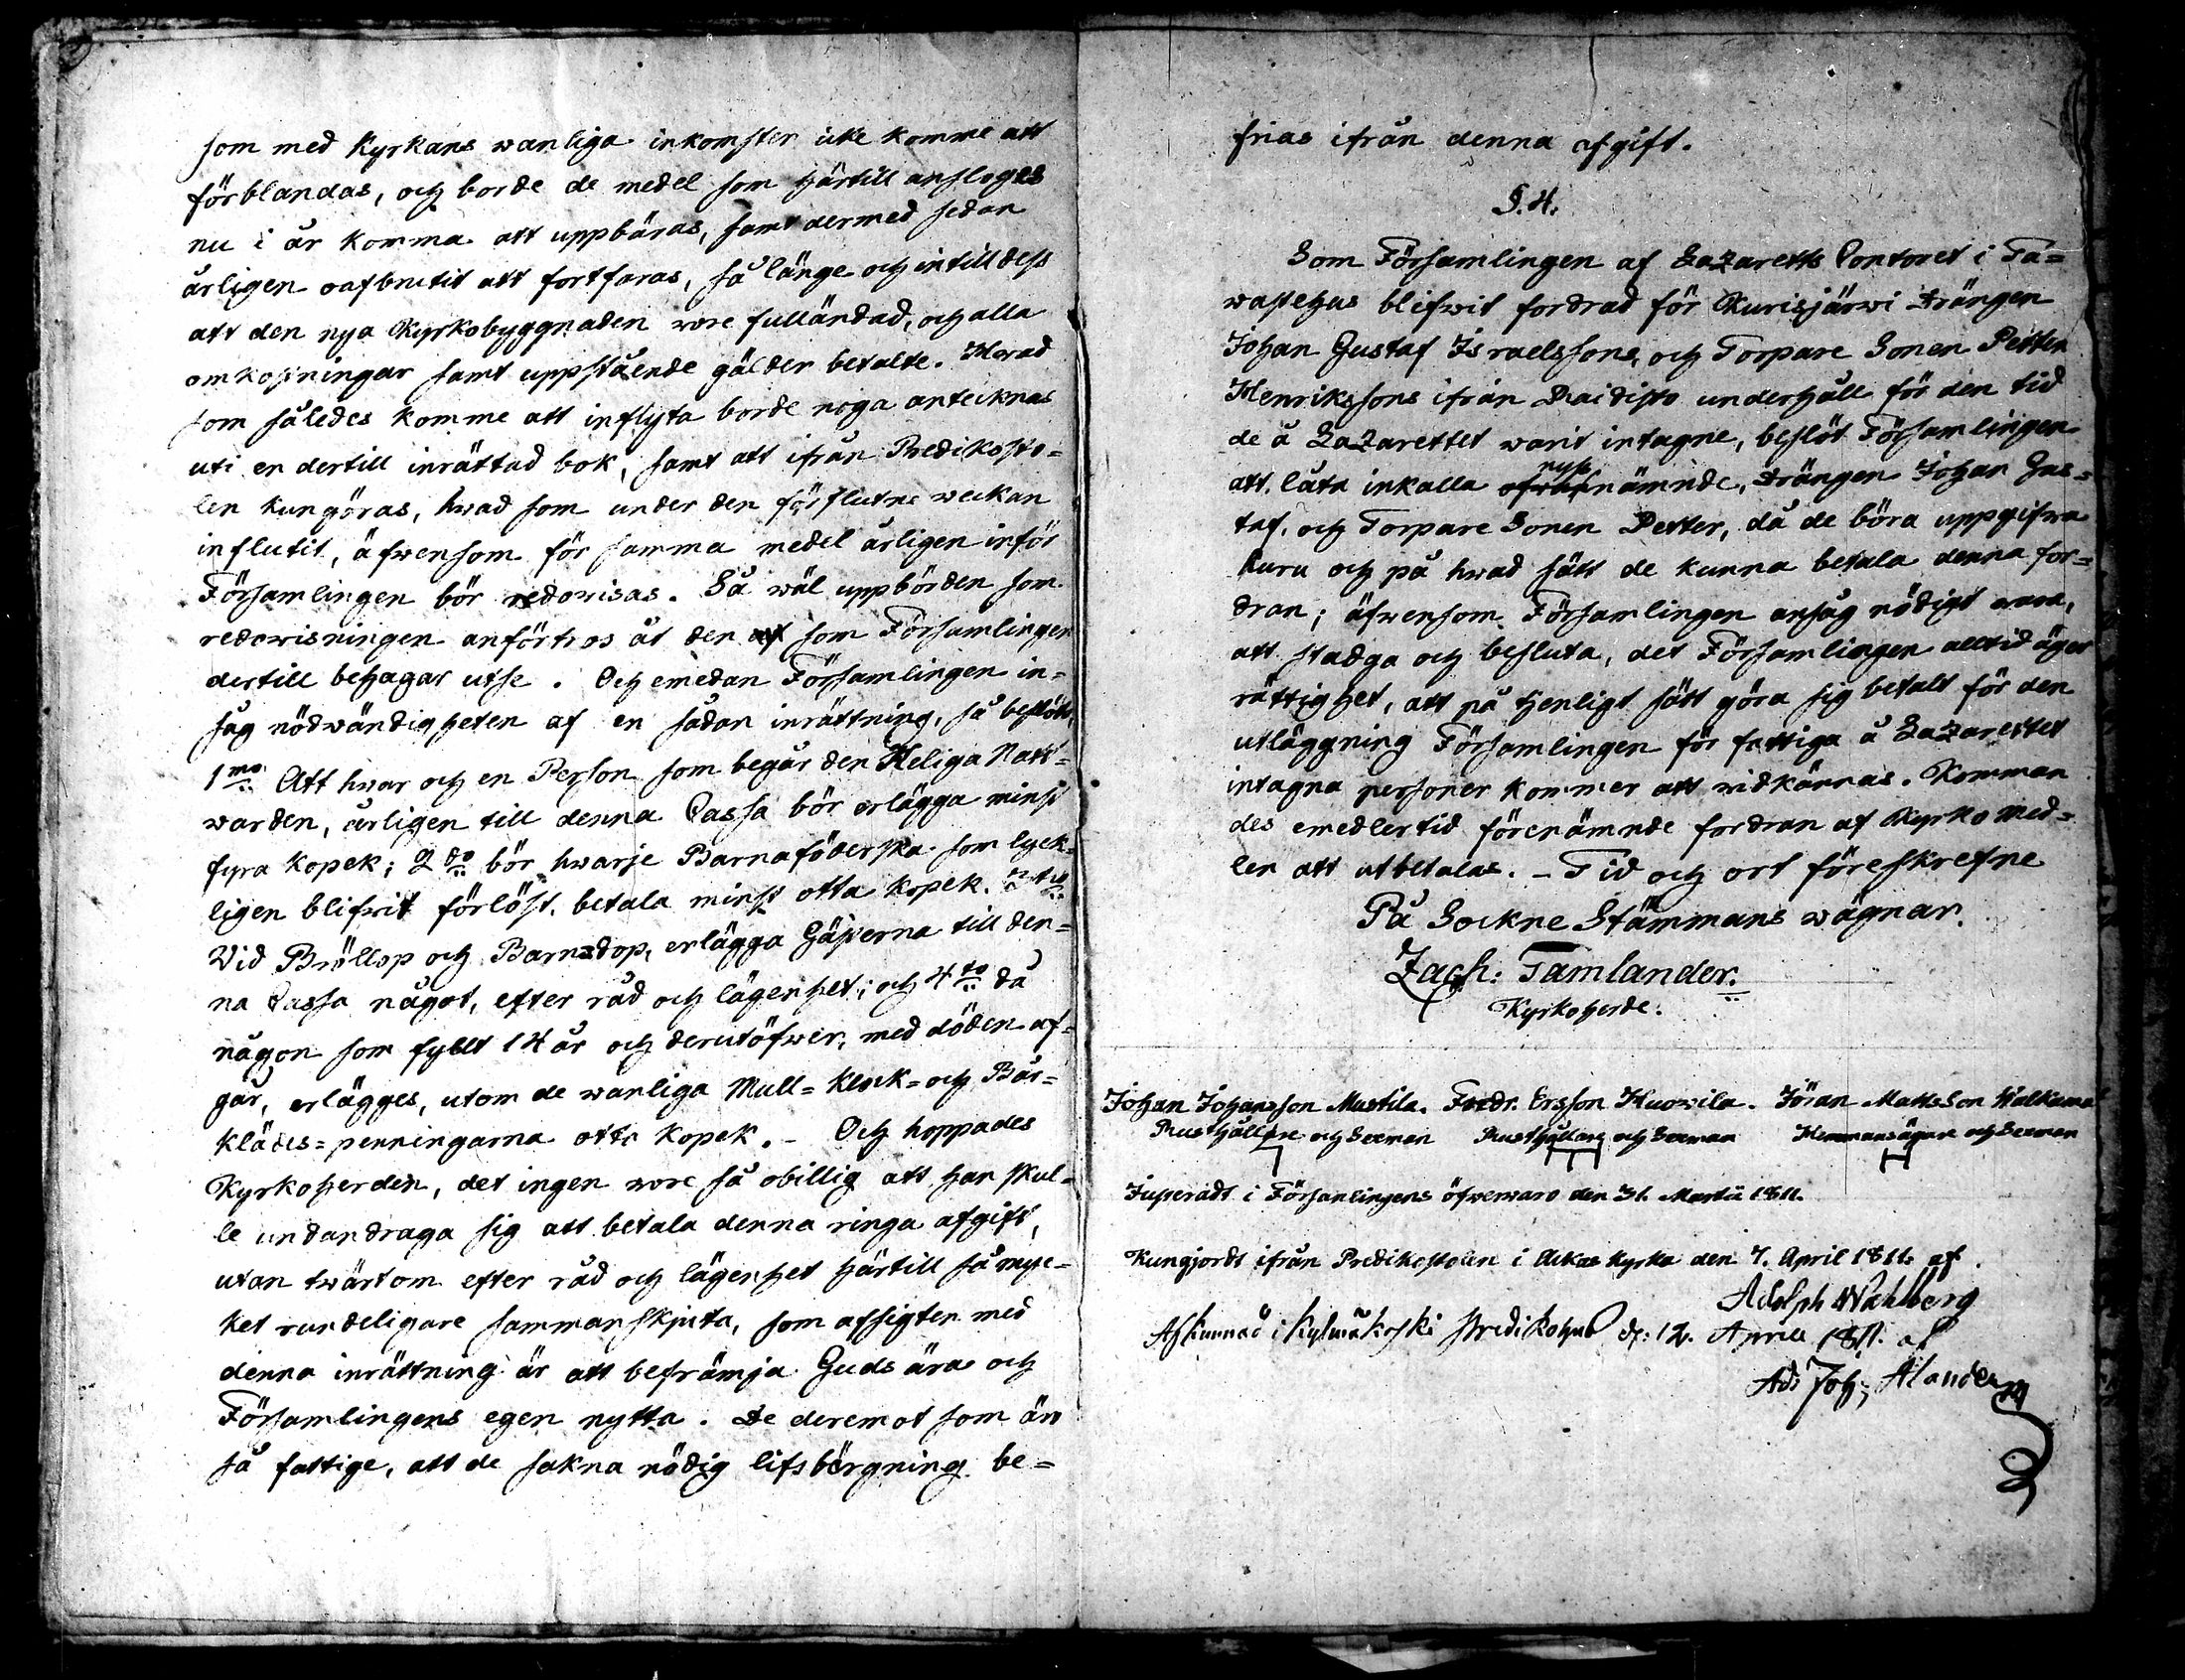 som med Kyrkans wanliga inkomster icke komme att
förblandas, och borde de medel som härtill ansloges
nu i år komma att uppbäras, samt dermed sedan
årligen oafbrutit att fortfaras, så länge och intill dess
att den nya Kyrkobyggnaden wore fulländad, och alla
omkostningar samt uppstående gälder betalte. Hwad
som således komme att inflyta borde noga antecknas
uti en dertill inrättad bok, samt att ifrån Predikosto=
len kungöras, hwad som under den förflutne weckan
influtit, äfwensom för samma medel årligen inför
Församlingen bör redowisas. Så wäl uppbörden som
redowisningen anförtros åt den som Församlingen
dertill behagar utse. Och emedan Församlingen in=
såg nödwändigheten af en sådan inrättning, så beslöts
1mo Att hwar och en Person som begår den Heliga Natt=
warden, årligen till denna Cassa bör erlägga minst
fyra Kopek; 2do bör hwarje Barnaföderska som lyck=
ligen blifwit förlöst, betala minst otta Kopek. 3tio
Vid Bröllop och Barnsdop, erlägga Gästerna till den=
na Cassa något, efter råd och lägenhet; och 4to då
någon som fyllt 14 år och derutöfwer, med döden af=
går, erlägges, utom de wanliga Mull= Klock= och Bår=
klädes=penningarna otta Kopek. – Och hoppades
Kyrkoherden, det ingen wore så obillig att han skul=
le undandraga sig att betala denna ringa afgift,
utan twärtom efter råd och lägenhet härtill så myc=
ket rundeligare sammanskjuta, som afsigten med
denna inrättning är att befrämja Guds ära och
Församlingens egen nytta. De deremot som äro
så fattige, att de sakna nödig lifsbergning be=
frias ifrån denna afgift.
§. 4.
Som Församlingen af Lazaretts Contoret i Ta=
wastehus blifwit fordrad för Kurisjärwi Drängen
Johan Gustaf Israelssons, och Torpare Sonen Petter
Henrikssons ifrån Raidisto underhåll för den tid
de å Lazarettet warit intagne, beslöt Församlingen
att låta inkalla nyss nämnde, Drängen Johan Gus=
taf, och Torpare Sonen Petter, då de böra uppgifwa
huru och på hwad sätt de kunna betala denna for=
dran; äfwensom Församlingen ansåg nödigt wara,
att stadga och besluta, det Församlingen alltid äger
rättighet, att på tjenligt sätt göra sig betalt för den
utläggning Församlingen för fattiga å Lazarettet
intagna personer kommer att widkännas. Komman
des emedlertid förenämnde fordran af Kyrko med=
len att utbetalas. – Tid och ort föreskrefne
På Sockne Stämmans wägnar.
Zach: Tamlander.
Kyrkoherde.
Johan Johansson Mustila. Fredr. Ersson Huowila. Jöran Mattsson Walkama
Rusthållare och Sexman Rusthållare och Sexman Hemmansägare och Sexman
Justeradt i Församlingens öfwerwaro den 31. Martii 1811.
Kungjordt ifrån Predikostolen i Akas Kyrka den 7. April 1811. af
Adolph Wahlberg
Afkunnad i Kylmäkoski Predikohus d: 12. Aprill 1811. af
Ad: Joh: Alander